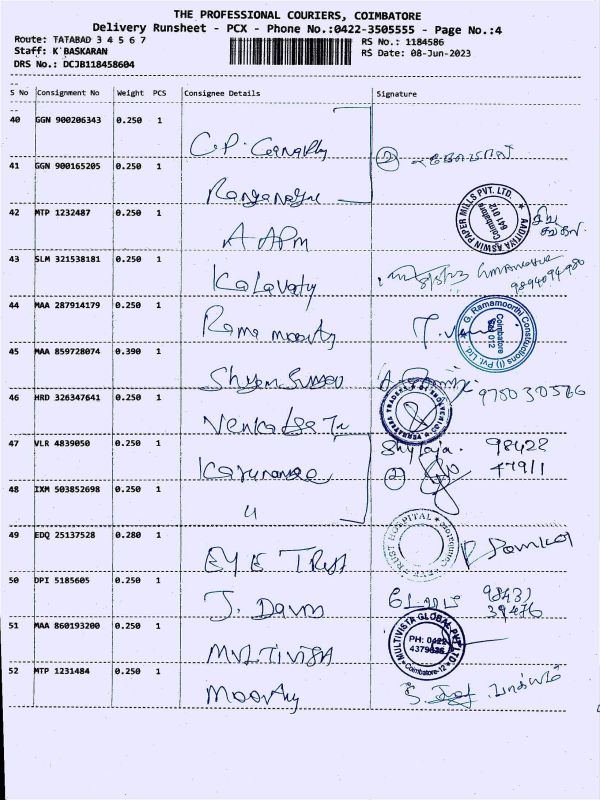 THE PROFESSIONAL COURIERS, COIMBATORE
Delivery Runsheet - PCX - Phone No.:0422-3505555 - Page No.:4
Route: TATABAD 3 4 5 6 7
RS No.: 1184586
Staff: K BASKARAN
RS Date: 08-Jun-2023
DRS No.: DCJB118458604
S No Consignment No Weight PCS Consignee Details Signature
40 GGN 900206343 0.250 1
C.P.
41 GGN 900165205 0.250 1
2
42 MTP 1232487 0.250 1 AADITYA ASWIN PAPER MILLS PVT. LTD. Coimbatore 641 012
A APM
43 SLM 321538181 0.250 1
Kalavaty 9894094980
44 MAA 287914179 0.250 1 G. Ramamoorthi Constuctions (I) Pvt. Ltd. Coimbatore 641 012
Rama moorty
45 MAA 859728074 0.390 1
46 HRD 326347641 0.250 1
47 VLR 4839050 0.250 1 Shylaja. 98428
47911
2
48 IXM 503852698 0.250 1
4
49 EDQ 25137528 0.280 1 EYE TRUST HOSPITAL
EYE TRUST
50 DPI 5185605 0.250 1
J. 98431
39476
51 MAA 860193200 0.250 1 MULTIVISTA GLOBAL PVT LTD PH: 0422 4379636 Coimbatore-12
MULTIVISTA
52 MTP 1231484 0.250 1
Moorthy